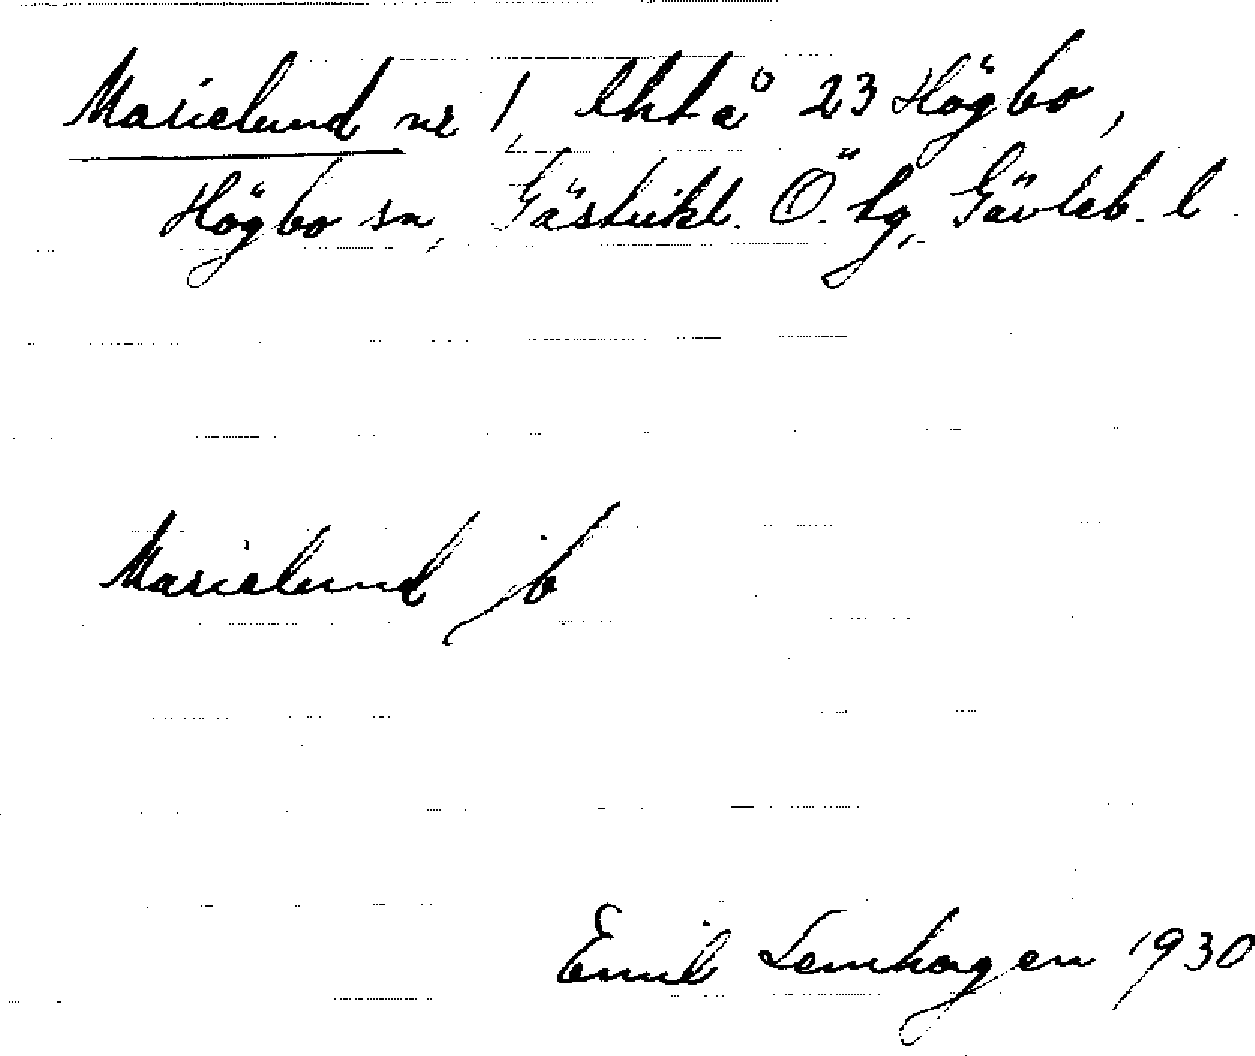 Marielund nr 1, lht å 23 Högbo,
Högbo sn, Gästrikl. Ö. tg, Gävleb. l.
Marielund jb
Emil Lenhagen 1930